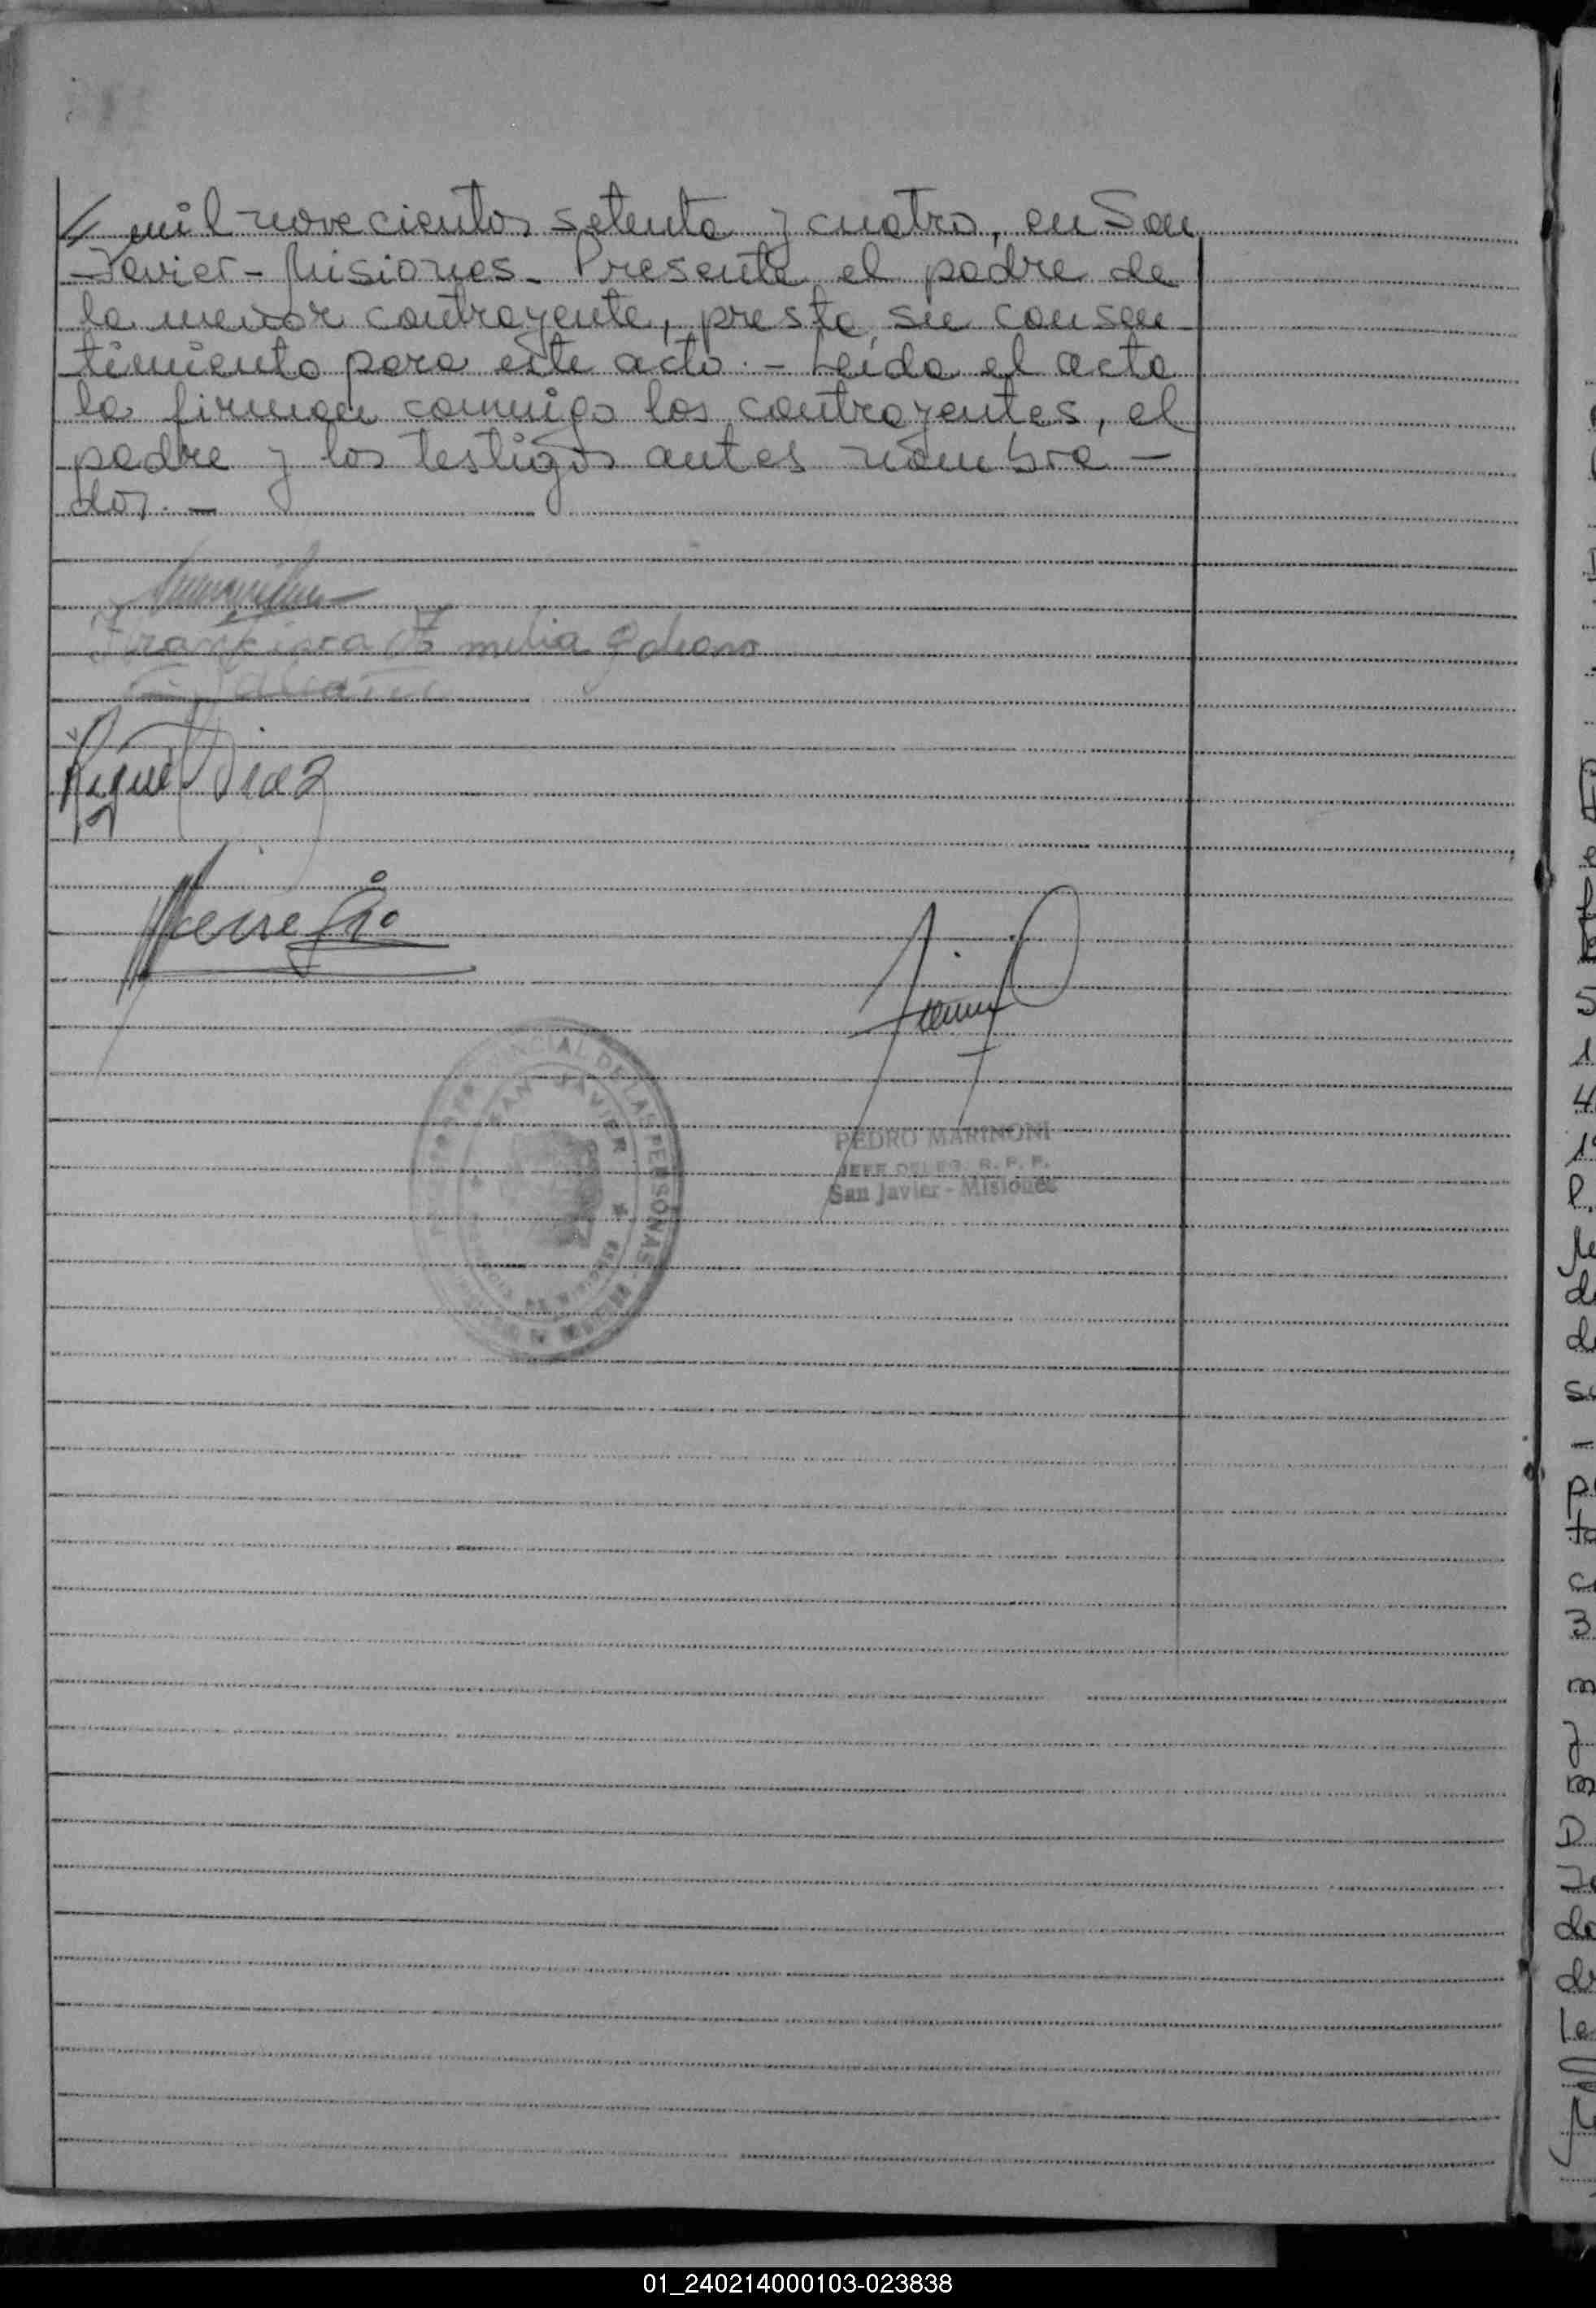 mil novecientos setenta y cuatro, en San
Javier - Misiones - Presente el padre de
la menor contrayente, presta su consen
timiento para este acto. - Leída el acta
la firman conmigo los contrayentes, el
padre y los testigos antes nombra -
dos. -
Emilia
Miguel Diaz
PROVINCIAL DE LAS PERSONAS
SAN JAVIER
PEDRO MARINONI
JEFE DELEG. R. P. P.
San Javier - Misiones
01_240214000103-023838